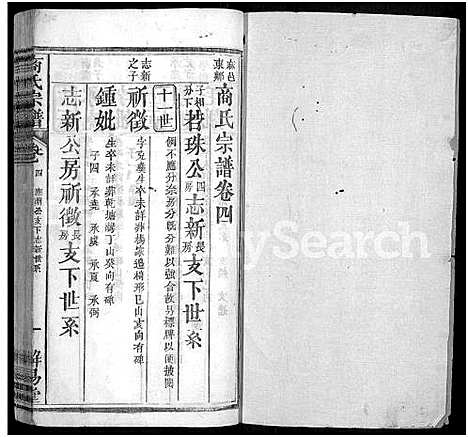 麻邑
東鄉
商氏宗譜卷四
子相
分下
若珠公
四
房
志新
長
房
支下世系
十一世
例不應分桼房分旣分難以強合故另標牌以便披閱
志新
之子
祈徵
生卒未詳葬楊家邉椅形巳山亥向有碑
鍾妣
生卒未詳葬乾塘灣丁山癸向有碑
子四 承堯 承虞 承夏 承弼
志新公房祈徵
長
房
支下世系
商氏宗譜
卷之四
支下志新世系
一
MySearch